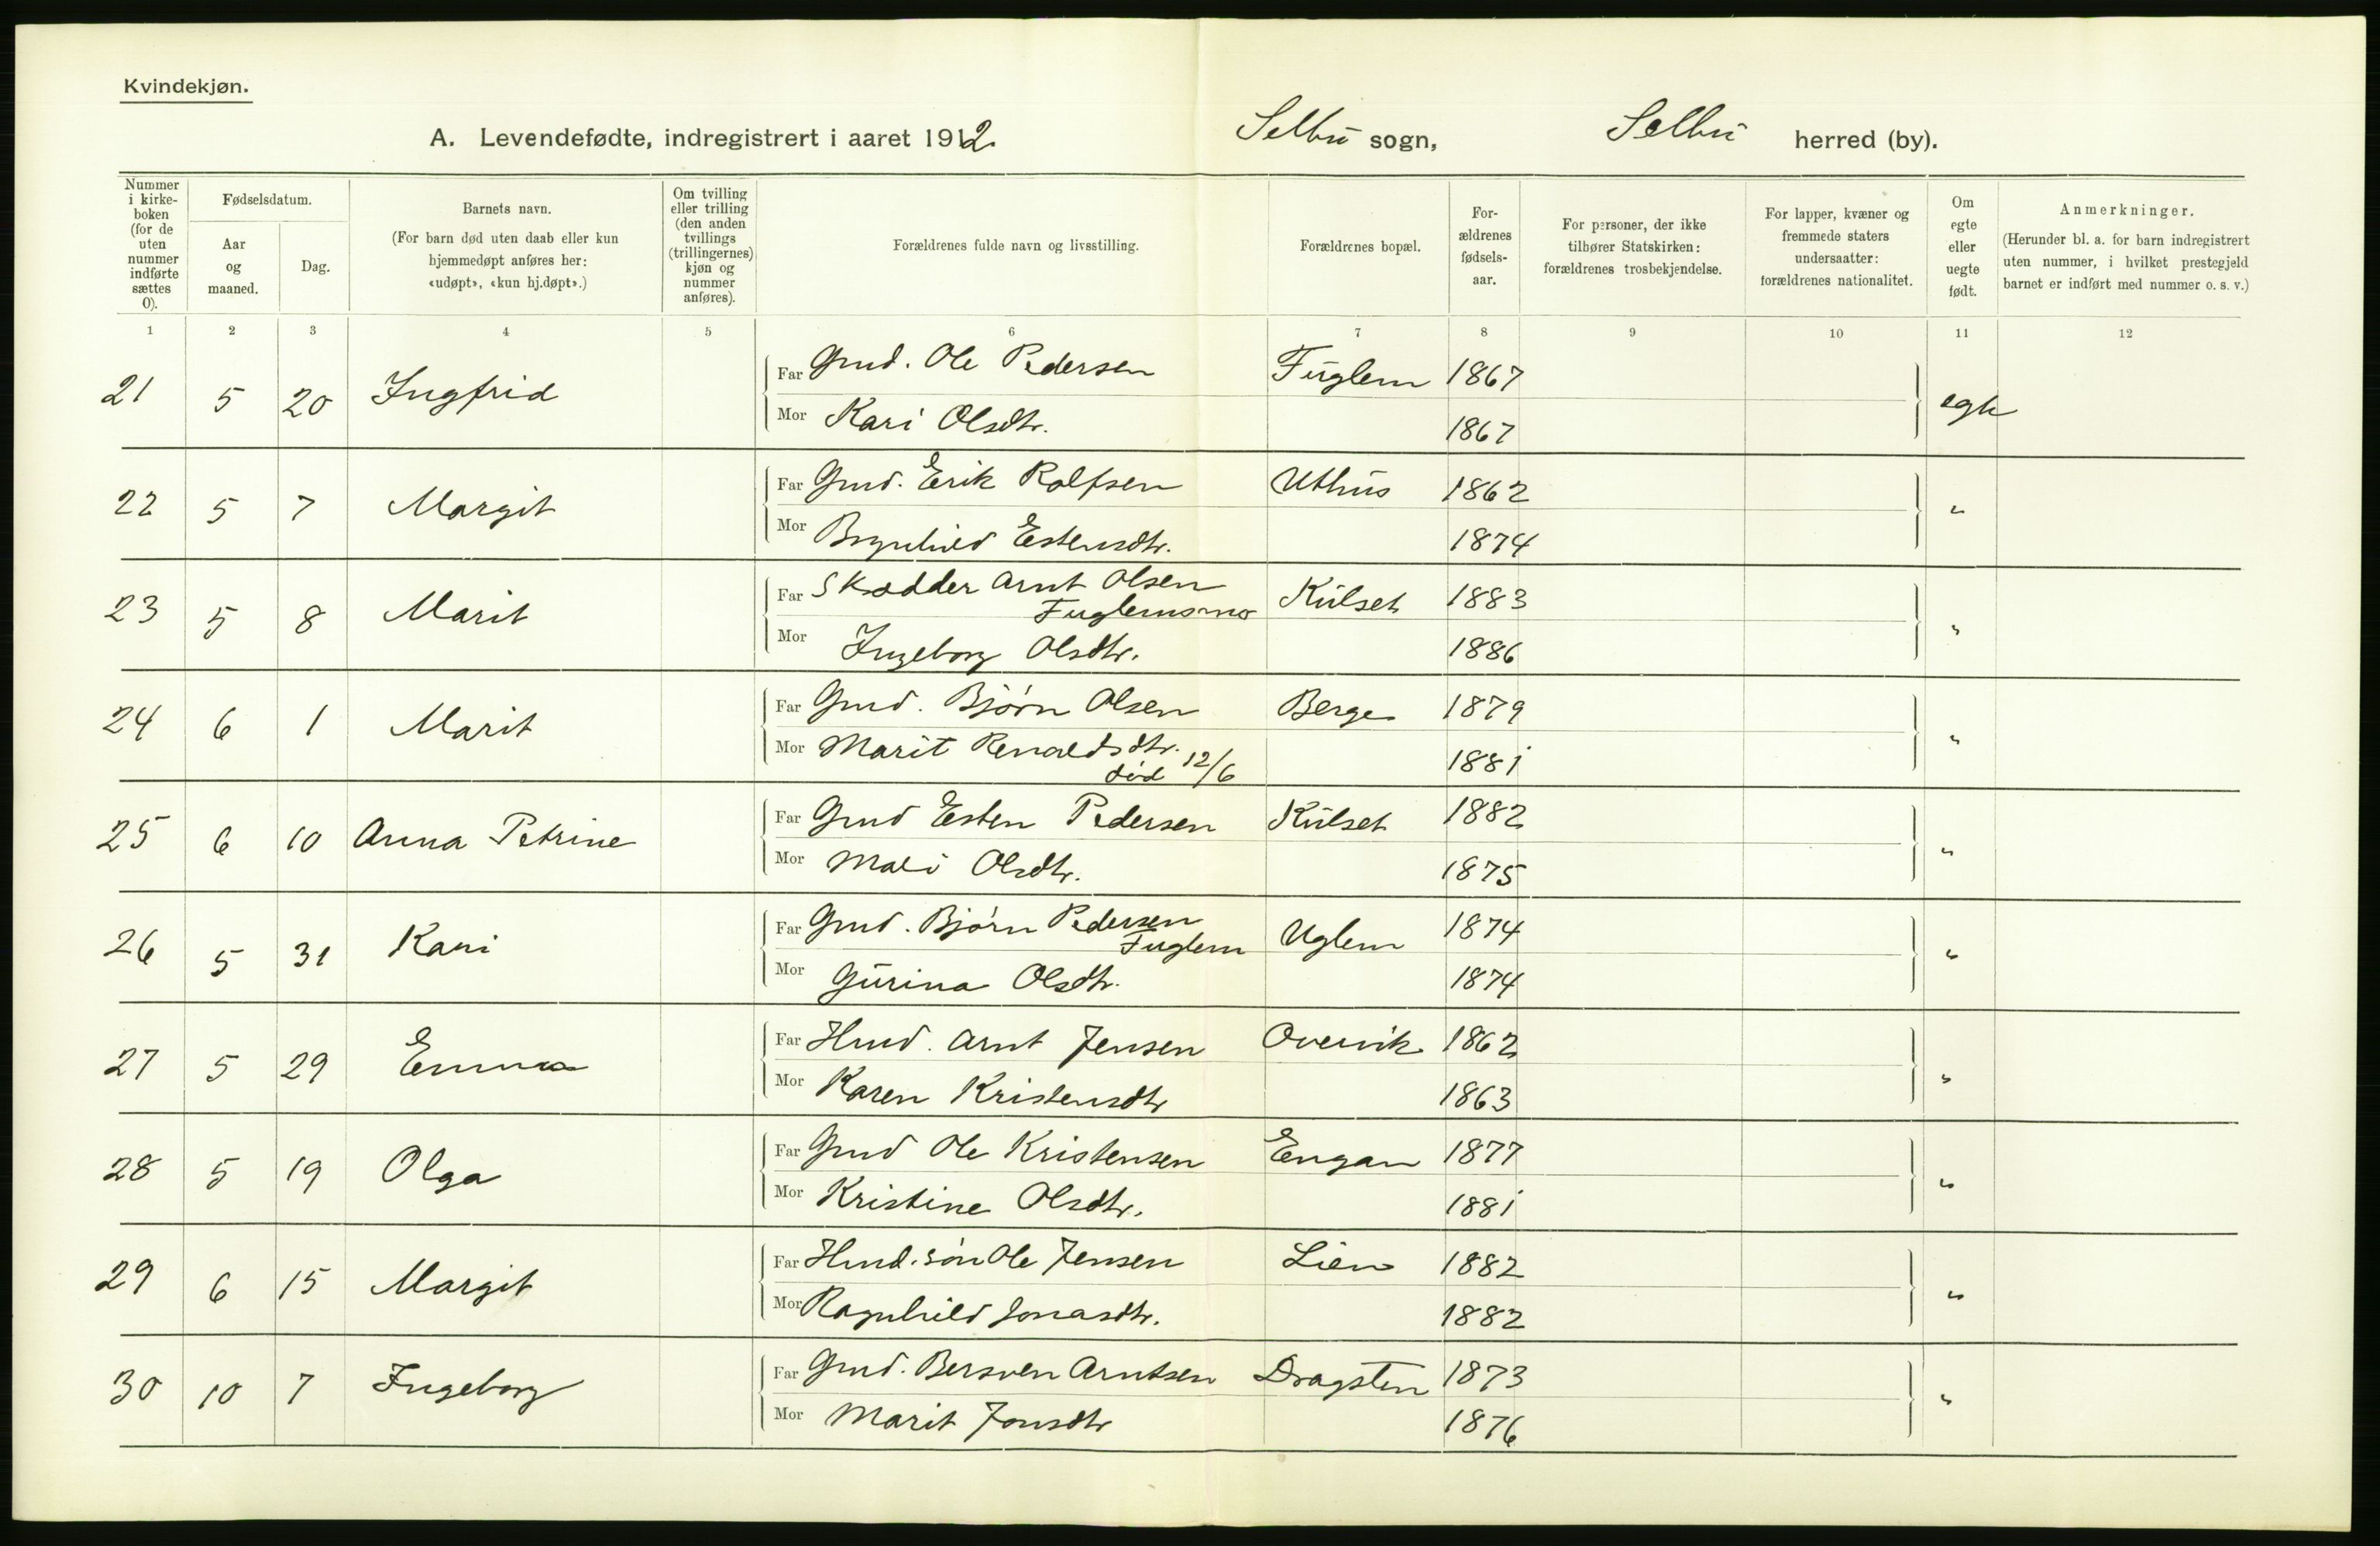 Kvindekjøn.
A. Levendefødte, indregistrert i aaret 1912. Selbu sogn, Selbu herred (by).
Nummer i kirke-boken (for de uten nummer indførte sættes 0).
Fødselsdatum.
Aar og maaned.
Dag.
Barnets navn.
(For barn død uten daab eller kun hjemmedøpt anføres her: «udøpt», «kun hj.døpt».)
Om tvilling eller trilling (den anden tvillings (trillingernes) kjøn og nummer anføres).
Forældrenes fulde navn og livsstilling.
Forældrenes bopæl.
For-ældrenes fødsels-aar.
For personer, der ikke tilhører Statskirken: forældrenes trosbekjendelse.
For lapper, kvæner og fremmede staters undersaatter: forældrenes nationalitet.
Om egte eller uegte født.
Anmerkninger.
(Herunder bl. a. for barn indregistrert uten nummer, i hvilket prestegjeld barnet er indført med nummer o. s. v.)
1 2 3 4 5 6 7 8 9 10 11 12
21 5 20 Ingfrid Far Gmd. Ole Pedersen Fuglem 1867 egte
Mor Kari Olsdtr. 1867
22 5 7 Margit Far Gmd. Erik Rolfsen Uthus 1862 "
Mor Brynhild Estensdtr. 1874
23 5 8 Marit Far Skrædder Arnt Olsen Kulset 1883 "
Fuglemsmo
Mor Ingeborg Olsdtr. 1886
24 6 1 Marit Far Gmd. Bjørn Olsen Berge 1879 "
Mor Marit Renaldsdtr. 1881
død 12/6
25 6 10 Anna Petrine Far Gmd Esten Pedersen Kulset 1882 "
Mor Mali Olsdtr. 1875
26 5 31 Kari Far Gmd. Bjørn Pedersen Uglem 1874 "
Fuglem
Mor Gurina Olsdtr. 1874
27 5 29 Emma Far Hmd. Arnt Jensen Overvik 1862 "
Mor Karen Kristensdtr 1863
28 5 19 Olga Far Gmd Ole Kristensen Engan 1877 "
Mor Kristine Olsdtr. 1881
29 6 15 Margit Far Hmd. søn Ole Jensen Lien 1882 "
Mor Ragnhild Jonasdtr. 1882
30 10 7 Ingeborg Far Gmd. Bersven Arntsen Dragsten 1873 "
Mor Marit Jonsdtr 1876